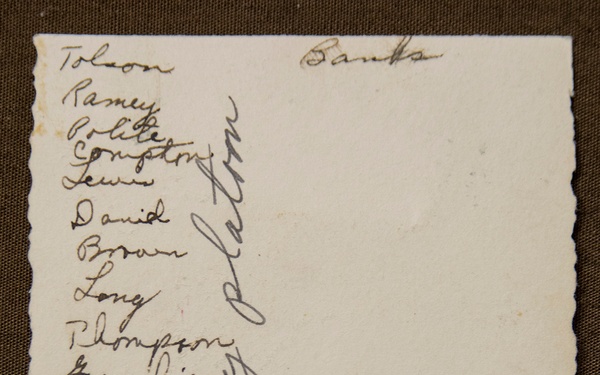 Tolson
Banks
Ramey
Polite
Compton
Lewis
David
Brown
Long
Thompson
platoon